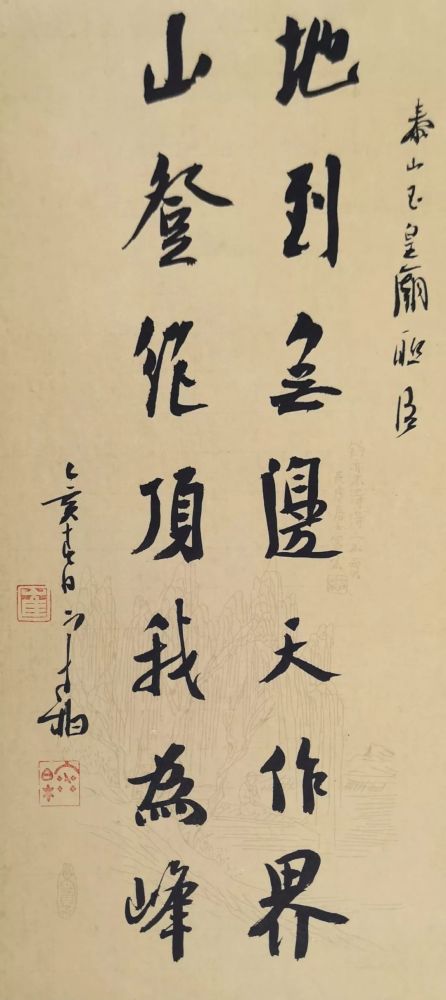 泰山玉皇廟
地到無邊天作界
山登絕頂我為峰
乙亥春日